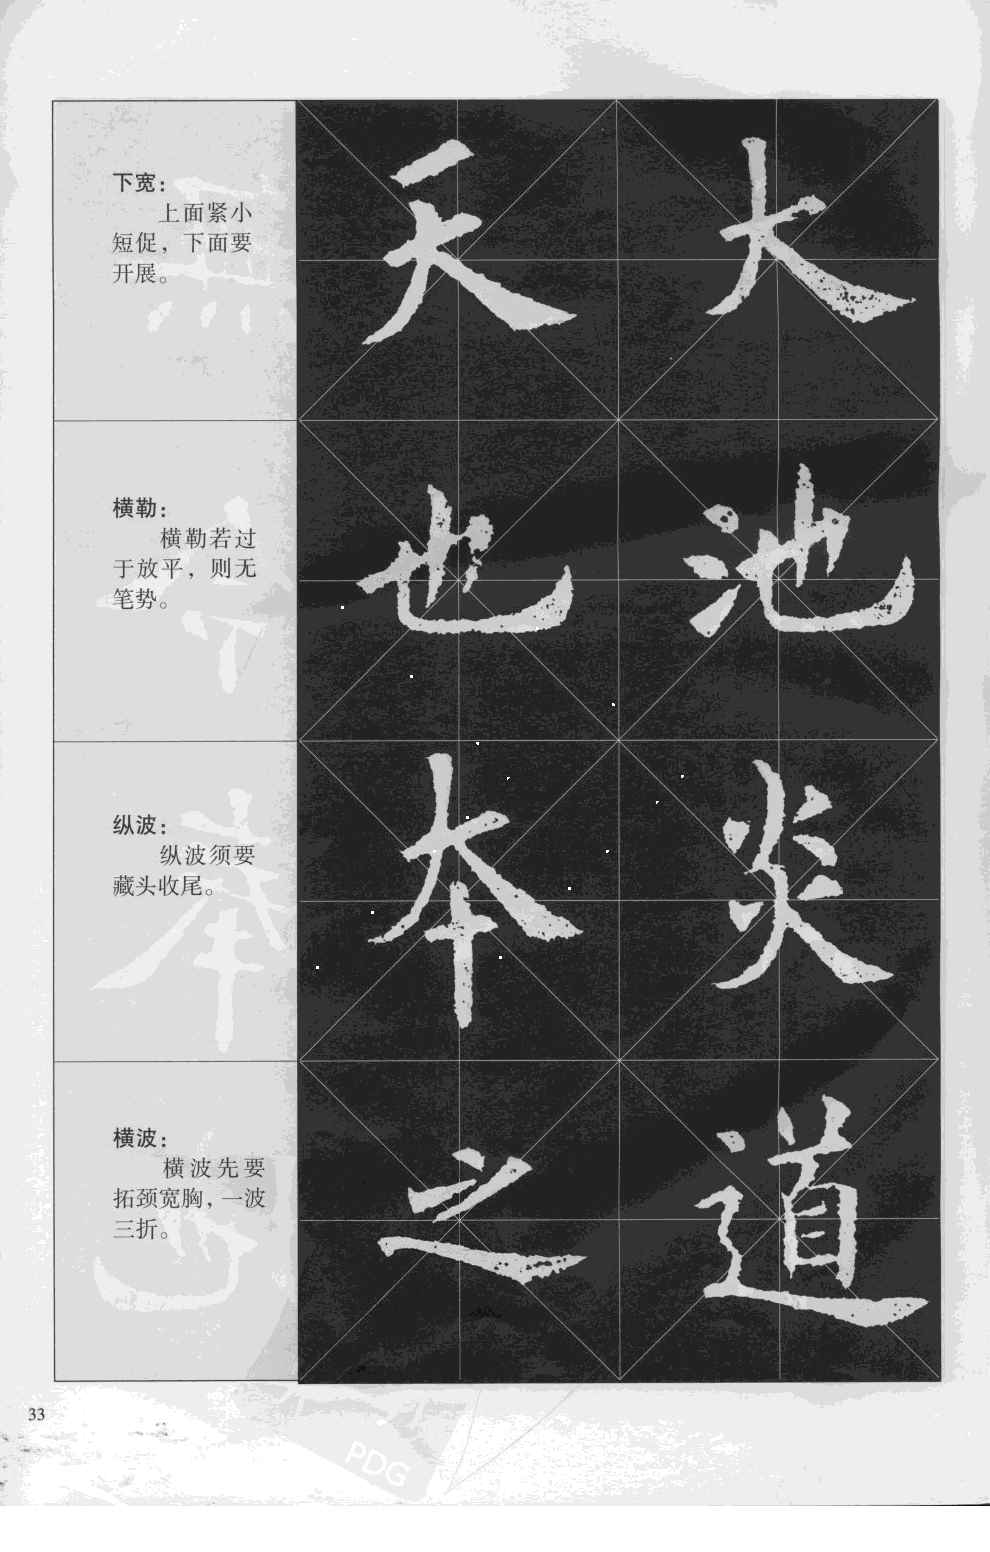 下宽：
上面紧小
短促，下面要
开展。
天 大
横勒：
横勒若过
于放平，则无
笔势。
也 池
纵波：
纵波须要
藏头收尾。
本 炎
横波：
横波先要
拓颈宽胸，一波
三折。
之 道
33
PDG